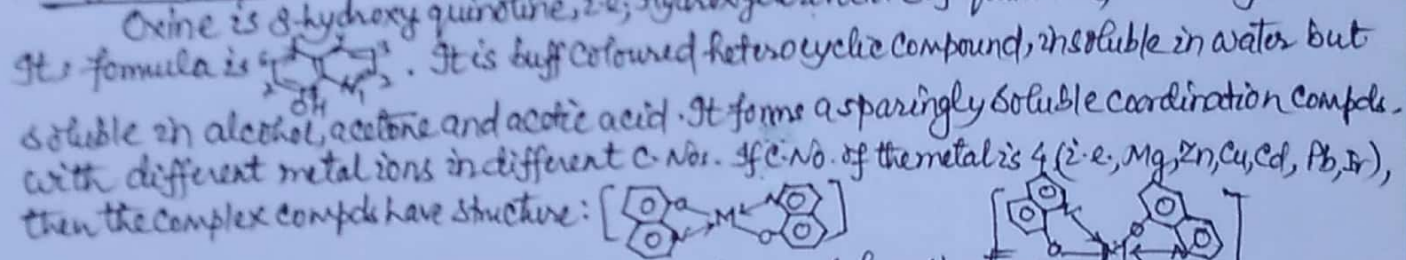 Oxine is 8-hydroxy quinoline, i.e;
It's fomula is 2 OH N 1 2 3 . It is buff coloured heterocyclic compound, insoluble in water but
soluble in alcohol, acetone and acetic acid. It forms a sparingly soluble coordination compds.
with different metal ions in different C. Nos. If C. No. of the metal is 4 (i.e., Mg, Zn, Cu, Cd, Pb, ),
then the complex compds have structure: [ O N M N O ] [ O M N ]